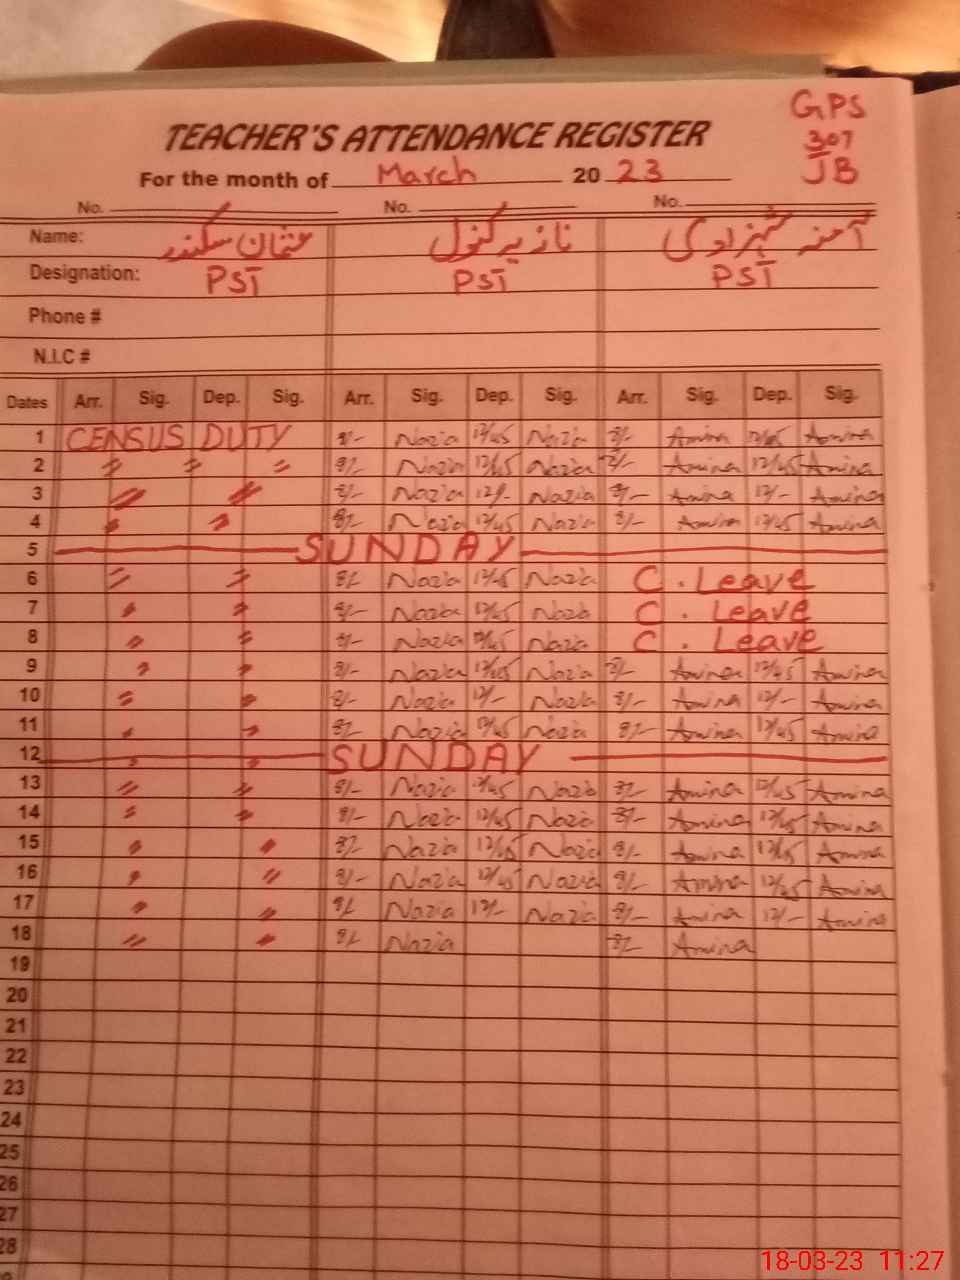 GPS
307
JB
TEACHER'S ATTENDANCE REGISTER
For the month of March 20 23
No. No. No.
Name: عثمان سکندر نازیہ کنول آمنہ شہزادی
Designation: PST PST PST
Phone #
N.I.C #
Dates Arr. Sig. Dep. Sig. Arr. Sig. Dep. Sig. Arr. Sig. Dep. Sig.
1 CENSUS DUTY 8/- Nazia 12/45 Nazia 8/- Amina 12/45 Amina
2 〃 〃 〃 8/- Nazia 12/45 Nazia 8/- Amina 12/45 Amina
3 〃 〃 8/- Nazia 12/- Nazia 8/- Amina 12/- Amina
4 〃 〃 8/- Nazia 12/45 Nazia 8/- Amina 12/45 Amina
5 SUNDAY
6 〃 〃 8/- Nazia 12/45 Nazia C. Leave
7 〃 〃 8/- Nazia 12/45 Nazia C. Leave
8 〃 〃 8/- Nazia 12/45 Nazia C. Leave
9 〃 〃 8/- Nazia 12/45 Nazia 8/- Amina 12/45 Amina
10 〃 〃 8/- Nazia 12/- Nazia 8/- Amina 12/- Amina
11 〃 〃 8/- Nazia 12/45 Nazia 8/- Amina 12/45 Amina
12 〃 〃 SUNDAY
13 〃 〃 8/- Nazia 12/45 Nazia 8/- Amina 12/45 Amina
14 〃 〃 8/- Nazia 12/45 Nazia 8/- Amina 12/45 Amina
15 〃 〃 8/- Nazia 12/45 Nazia 8/- Amina 12/45 Amina
16 〃 〃 8/- Nazia 12/45 Nazia 8/- Amina 12/45 Amina
17 〃 〃 8/- Nazia 12/- Nazia 8/- Amina 12/- Amina
18 〃 〃 8/- Nazia 8/- Amina
19
20
21
22
23
24
25
26
27
28
18-03-23 11:27